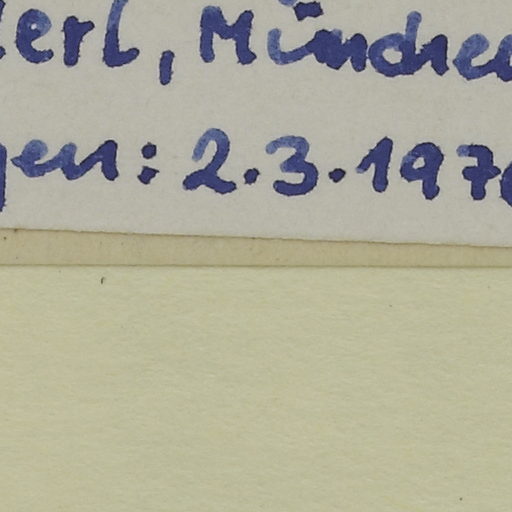 erl, München
gen: 2.3.197